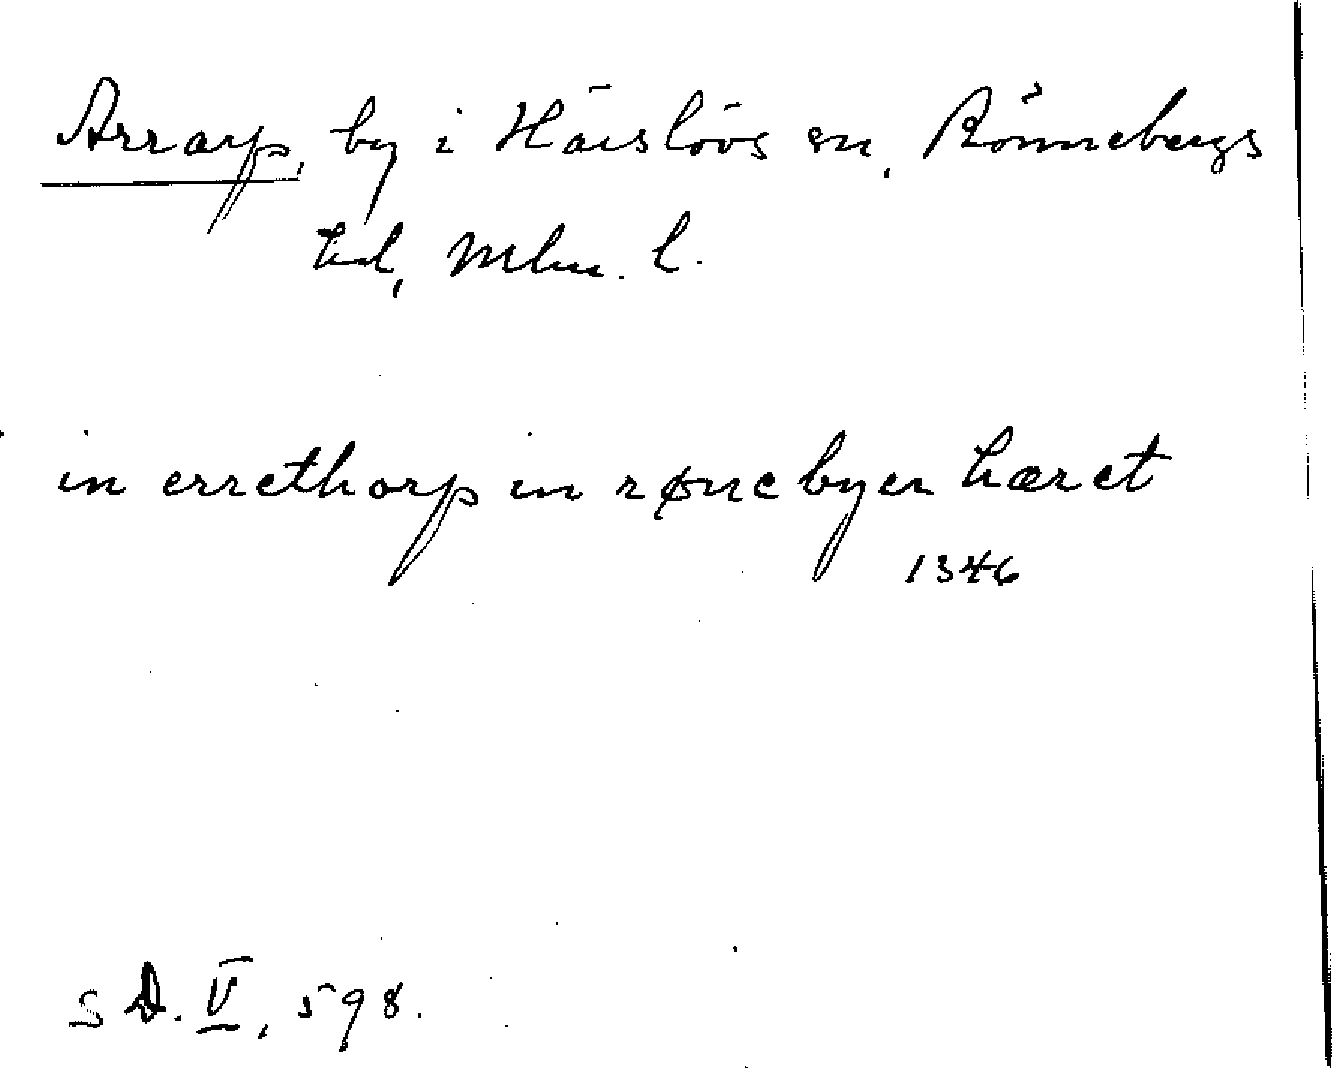 Arrarp, by i Härslövs sn, Rönnebergs
hd, Mlm. l.
in errethorp in rønebyer hæret
1346
SD. V, 598.